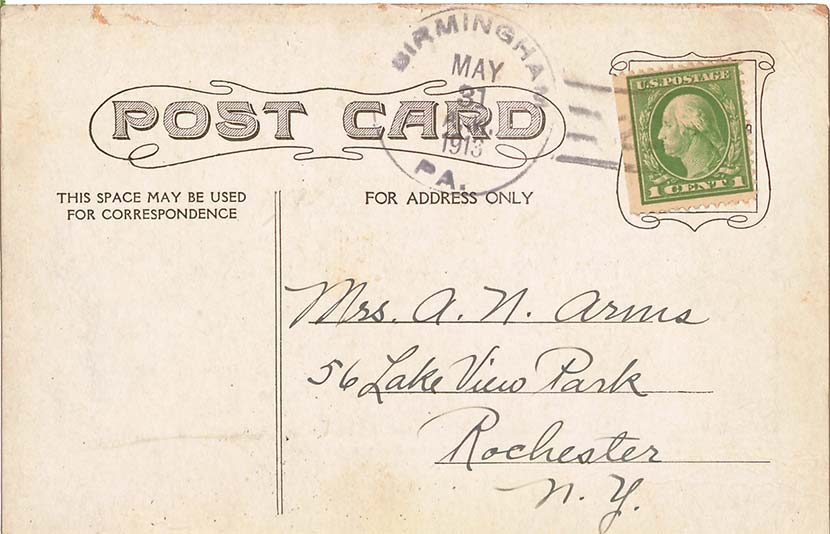 BIRMINGHAM
MAY
31
1913
PA.
U.S. POSTAGE
1 CENT 1
POST CARD
THIS SPACE MAY BE USED
FOR CORRESPONDENCE
FOR ADDRESS ONLY
Mrs. A. N. Arms
56 Lake View Park
Rochester
N. Y.